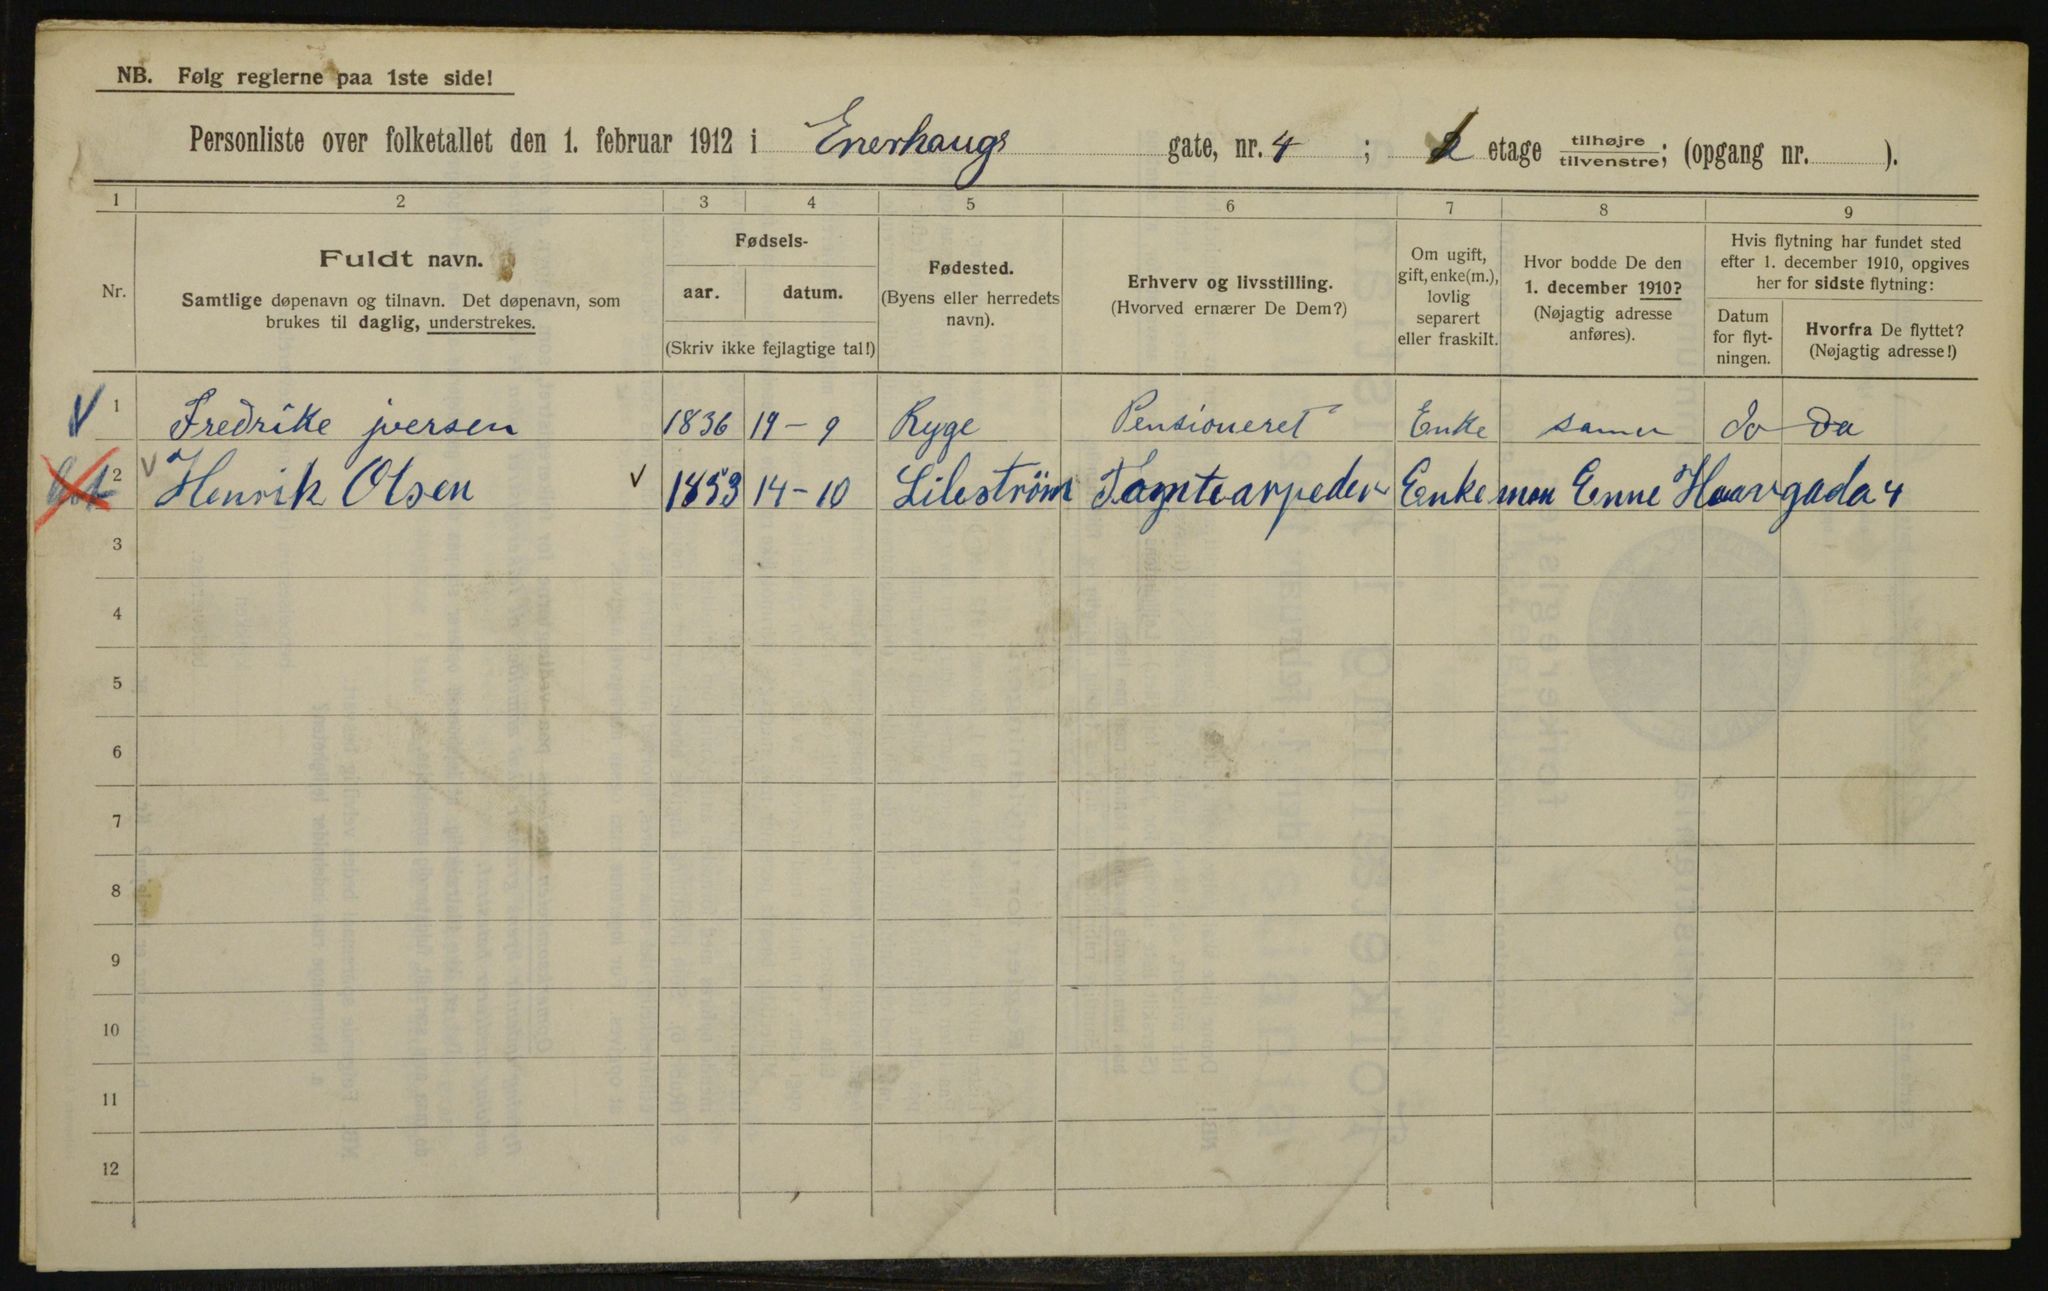 NB. Følg reglerne paa 1ste side!
Personliste over folketallet den 1. februar 1912 i Enerhaugs gate, nr. 4 ; 2 etage tilhøjre tilvenstre; (opgang nr. ).
1 2 3 4 5 6 7 8 9
Nr.
Fuldt navn.
Samtlige døpenavn og tilnavn. Det døpenavn, som
brukes til daglig, understrekes.
Fødsels-
aar. datum.
(Skriv ikke fejlagtige tal!)
Fødested.
(Byens eller herredets
navn).
Erhverv og livsstilling.
(Hvorved ernærer De Dem?)
Om ugift,
gift, enke(m.),
lovlig
separert
eller fraskilt.
Hvor bodde De den
1. december 1910?
(Nøjagtig adresse
anføres).
Hvis flytning har fundet sted
efter 1. december 1910, opgives
her for sidste flytning:
Datum
for flyt-
ningen.
Hvorfra De flyttet?
(Nøjagtig adresse!)
1 Fredrike jversen 1836 19-9 Ryge Pensioneret Enke samme do Do
2 Henrik Olsen 1853 14-10 Lileström Enkeman Enne Haavgada 4
3
4
5
6
7
8
9
10
11
12